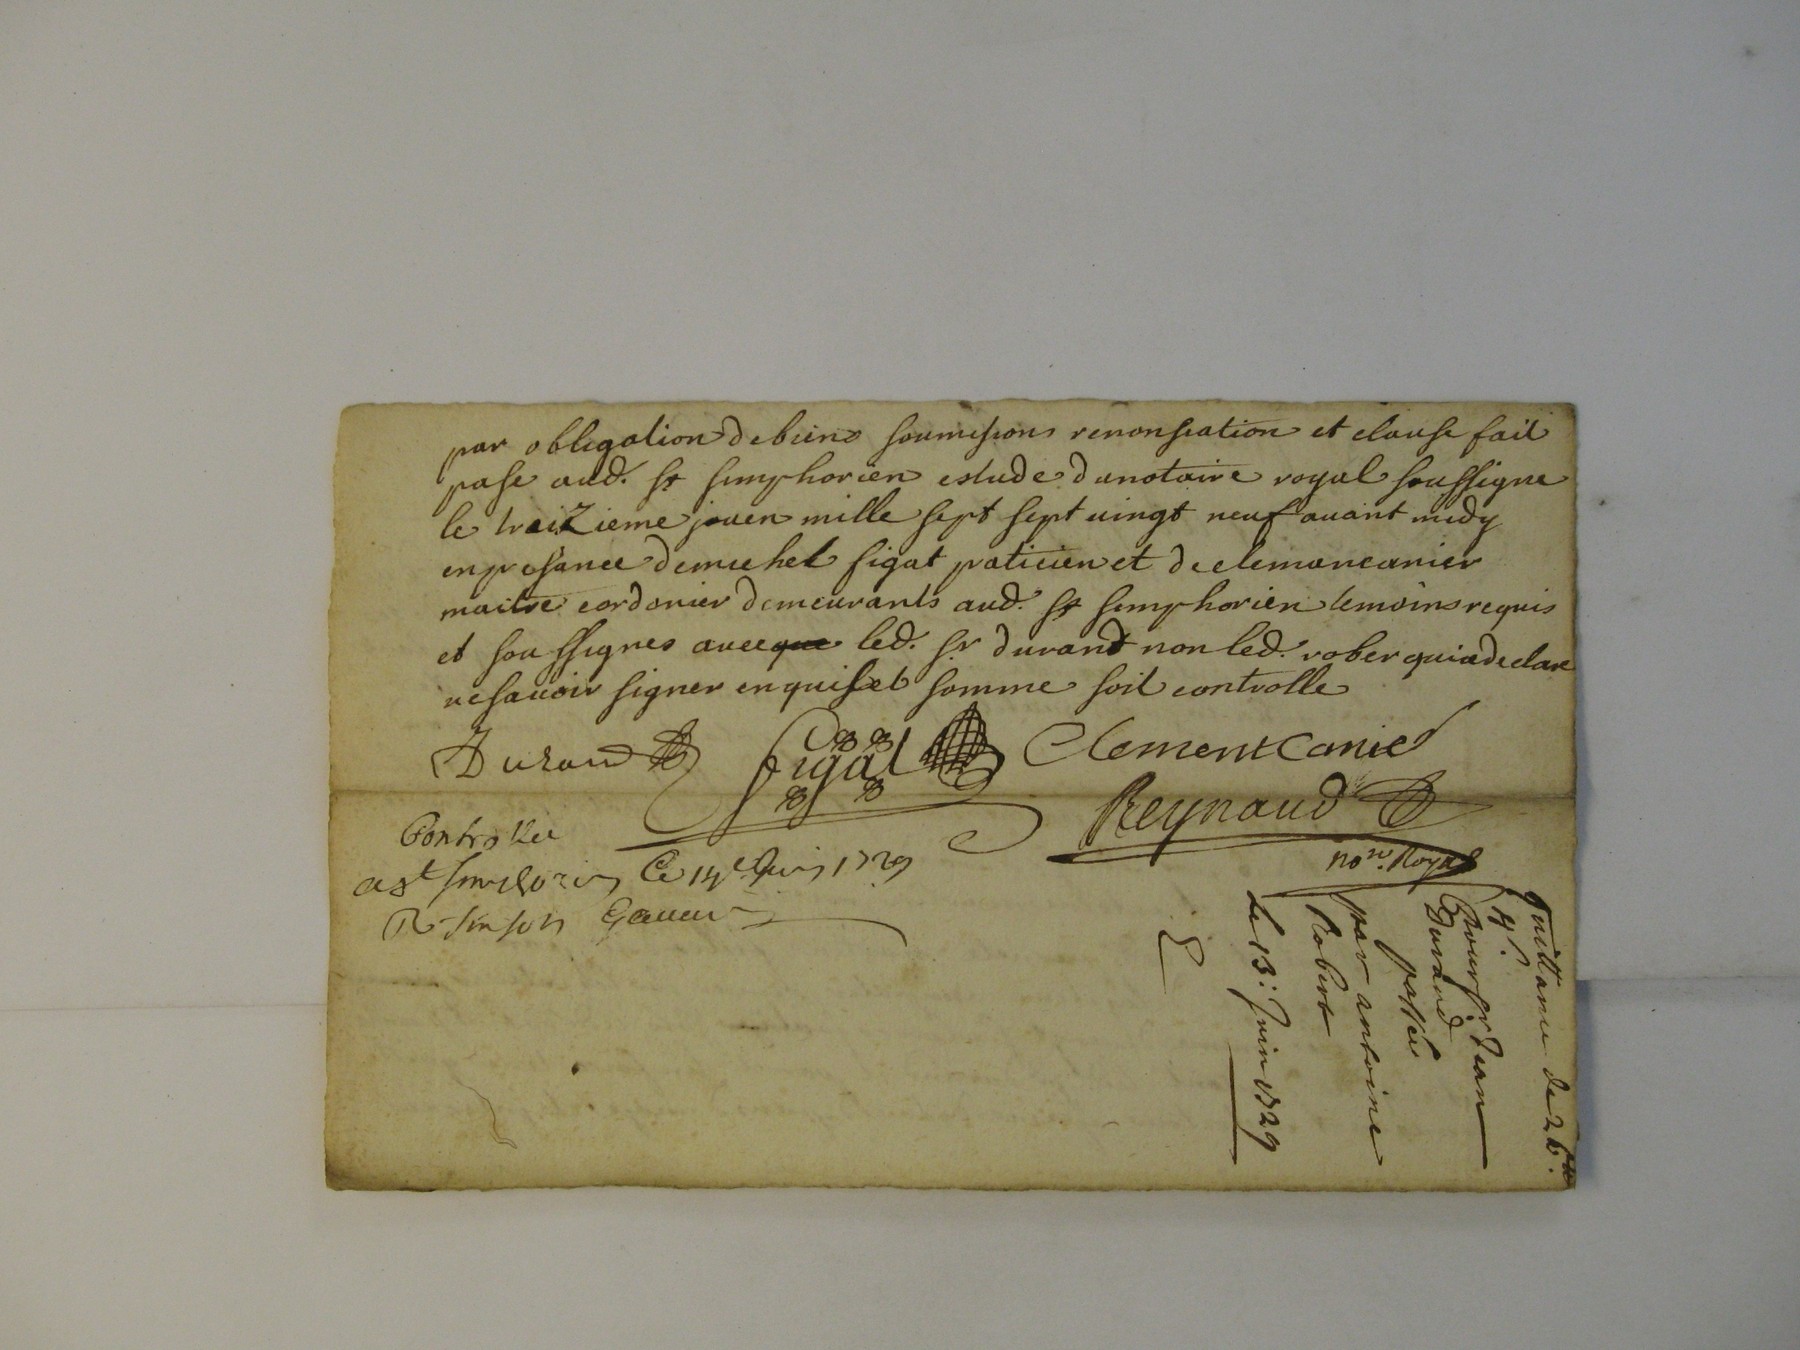 par obligation de biens soumisions renonsiation et clause fait
pase aud. st simphorien estude du notaire royal soussigne
le treizieme jouen mille sept sept vingt neuf avant midy
en presance de michel figat paticien et de clemancanier
maitre cordonier demeurants aud. st simphorien temoins requis
et soussignes avecque led. sr durand non led. rober qui a declare
ne savoir signer enquis et somme soit controlle
Durand figat Clement Canier
Reynaud
nore. Royal
Controllee
a st simphorien Ce 14e Juin 1729
R
quittance de 26 tt
4 s
Pour sr Jean
Durand
passée
par antoine
Robert
Le 13: Juin 1729